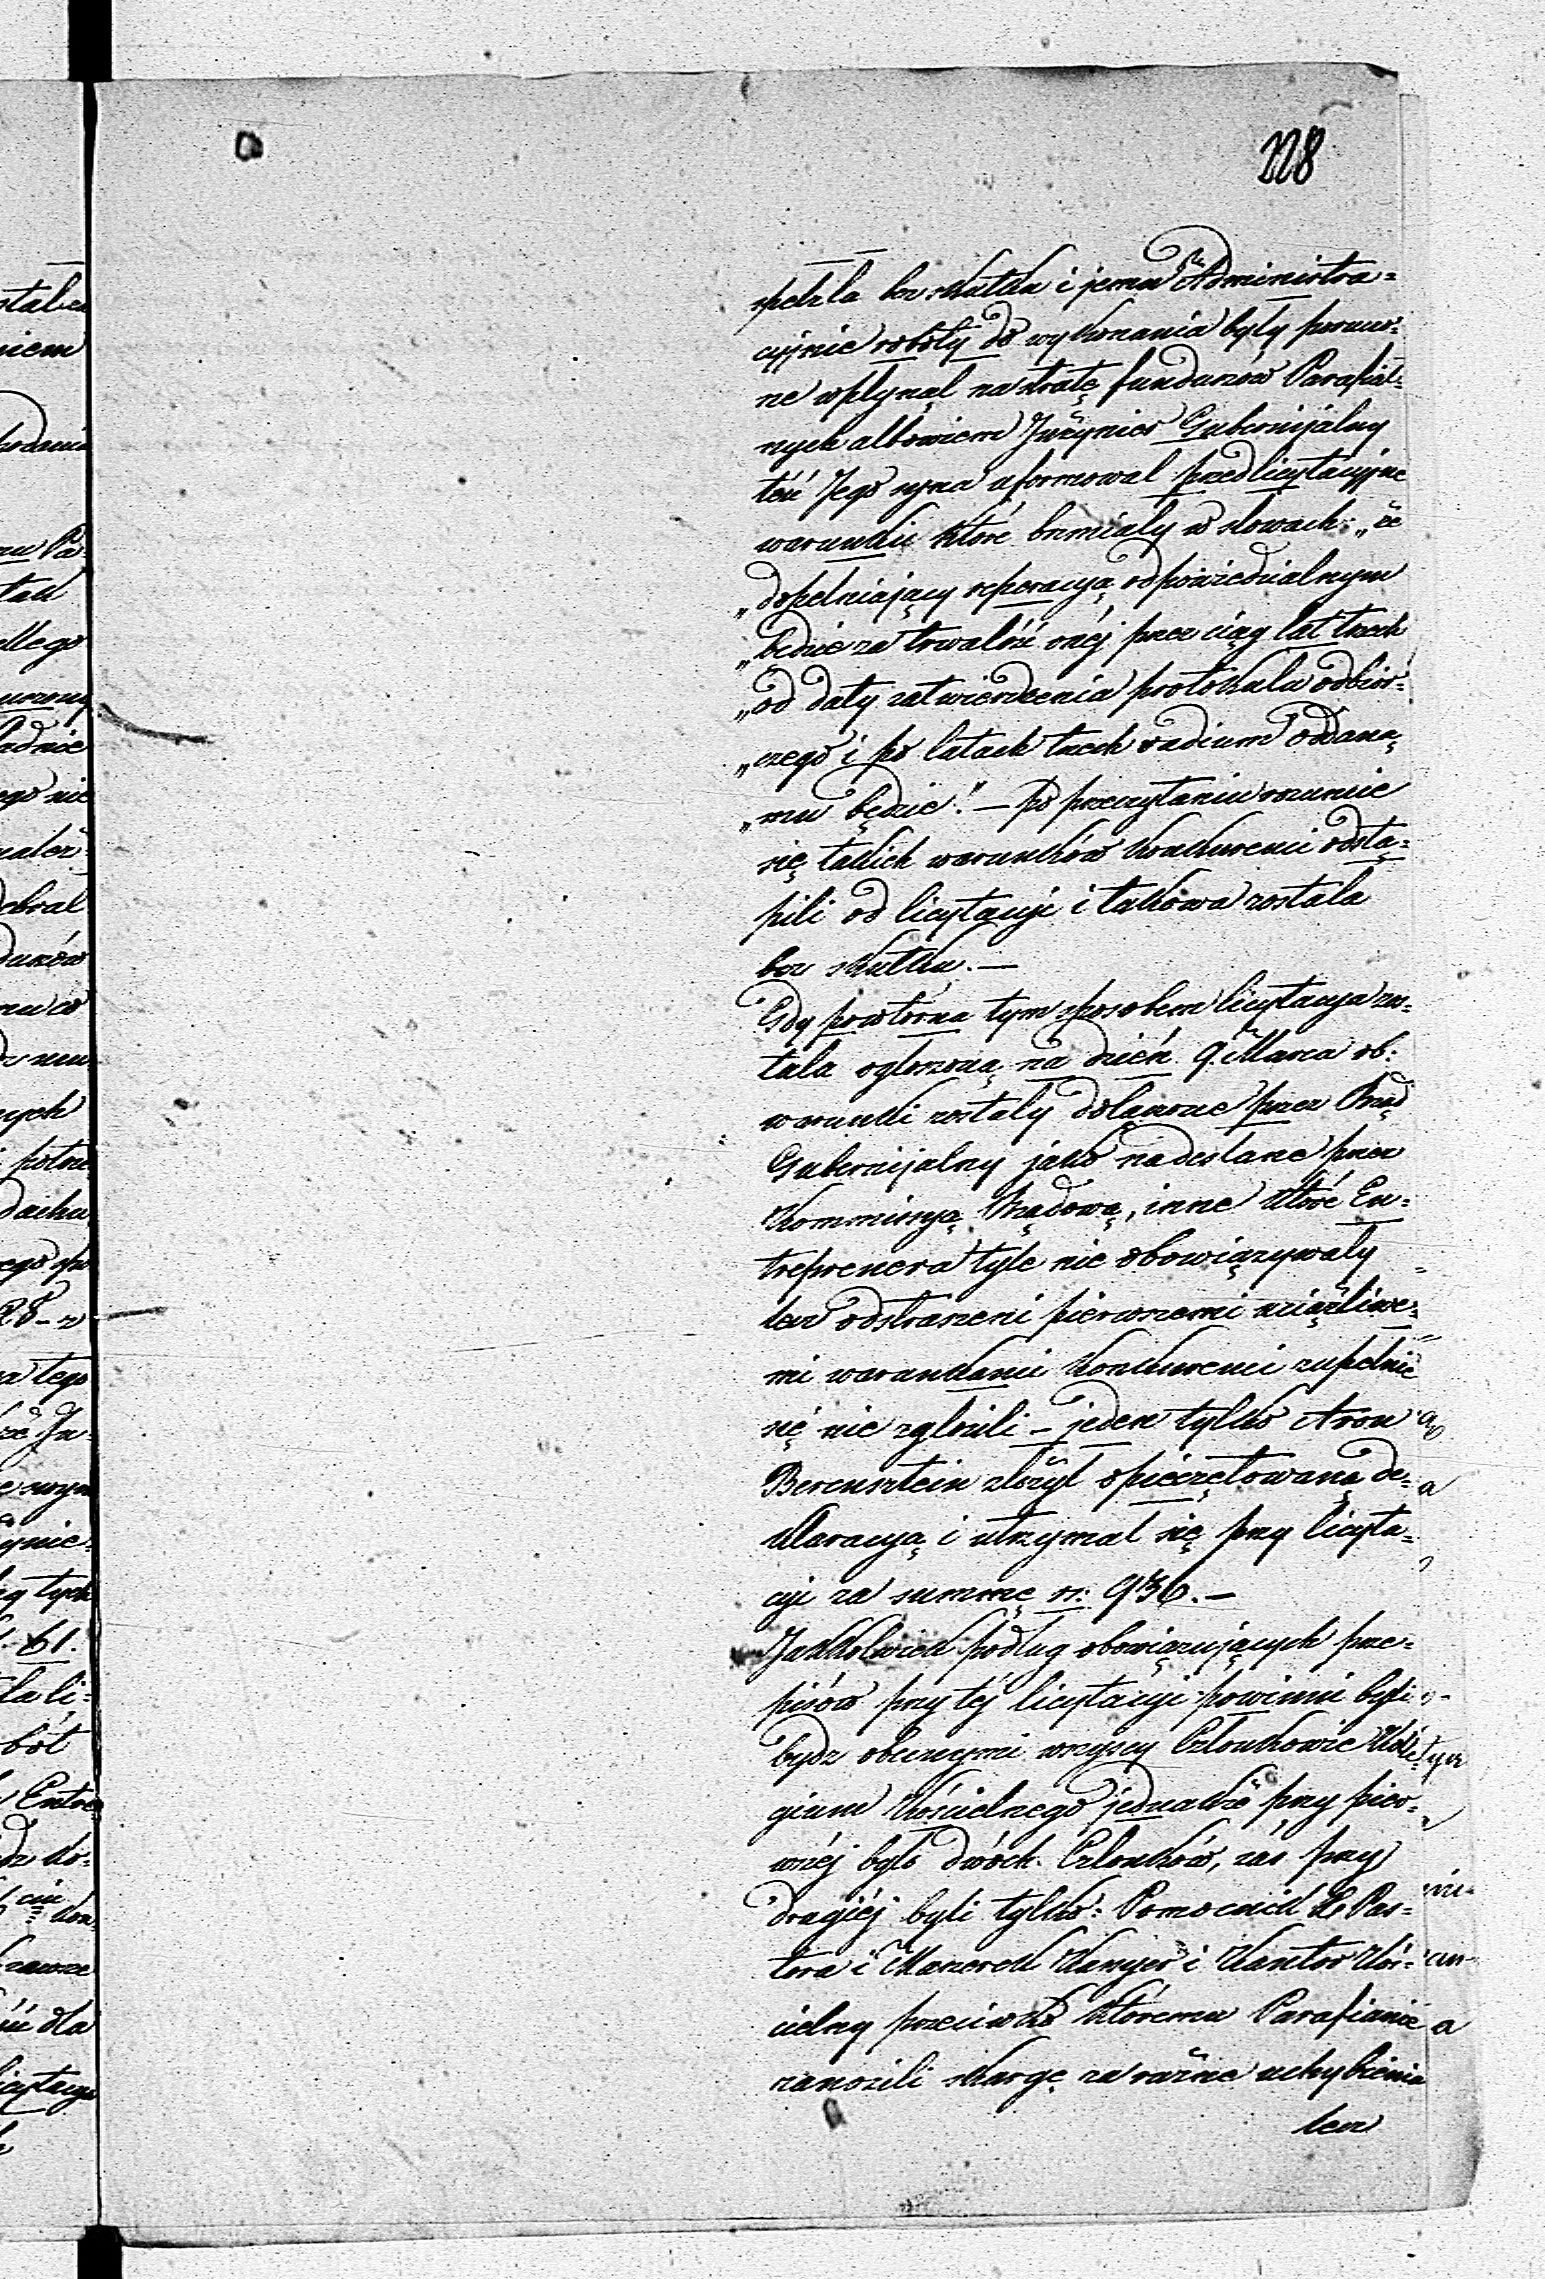 228
spełzła bez skutku i jemu Administra=
cyjnie roboty do wykonania były poruczo=
ne wpłynął na stratę funduszów Parafial=
nych albowiem Inżynier Gubernijalny
téń Jego syna uformował przedlicytacyjne
warunki które brzmiały w słowach: „że
„dopełniający reperacyą odpowiedzialnym
„będzie za trwałość onéj przez ciąg lat trzech
„od daty zatwierdzenia protokułu odbior=
„czego i po latach trzech vadium oddane
„mu będzie." — po przeczytaniu
się takich warunków konkurenci odstą=
pili od licytacyi i takowa została
bez skutku. —
Gdy powtórna tym sposobem licytacya zos=
tała ogłoszoną na dzień 9. Marca rb:
warunki zostały dołączone przez Rząd
Gubernijalny jako nadesłane przez
Kommissyą Rządową, inne które En=
trepenera tyle nie obowiązywały
lecz odstraszeni pierwszemi uciążliwe=
mi warunkami konkurenci zupełnie
się nie zgłosili – jeden tylko Aron
Berensztein złożył opieczętowaną de=
klaracyą i utrzymał się przy licyta=
cyi za summę rs: 936. —
Jakkolwiek podług obowiązujących prze=
pisów przy téj licytacyi powinni byli
bydź obecnymi wszyscy Członkowie Kolle=
gium Kościelnego jednakże przy pier=
wszéj było dwóch Członków, zaś przy
drugiéj byli tylko: Pomocnik X Pas=
tora i Mazerek Kassyer i Kantor Koś=
cielny przeciwko któremu Parafianie
zanosili skargę za różne uchybienia
lecz